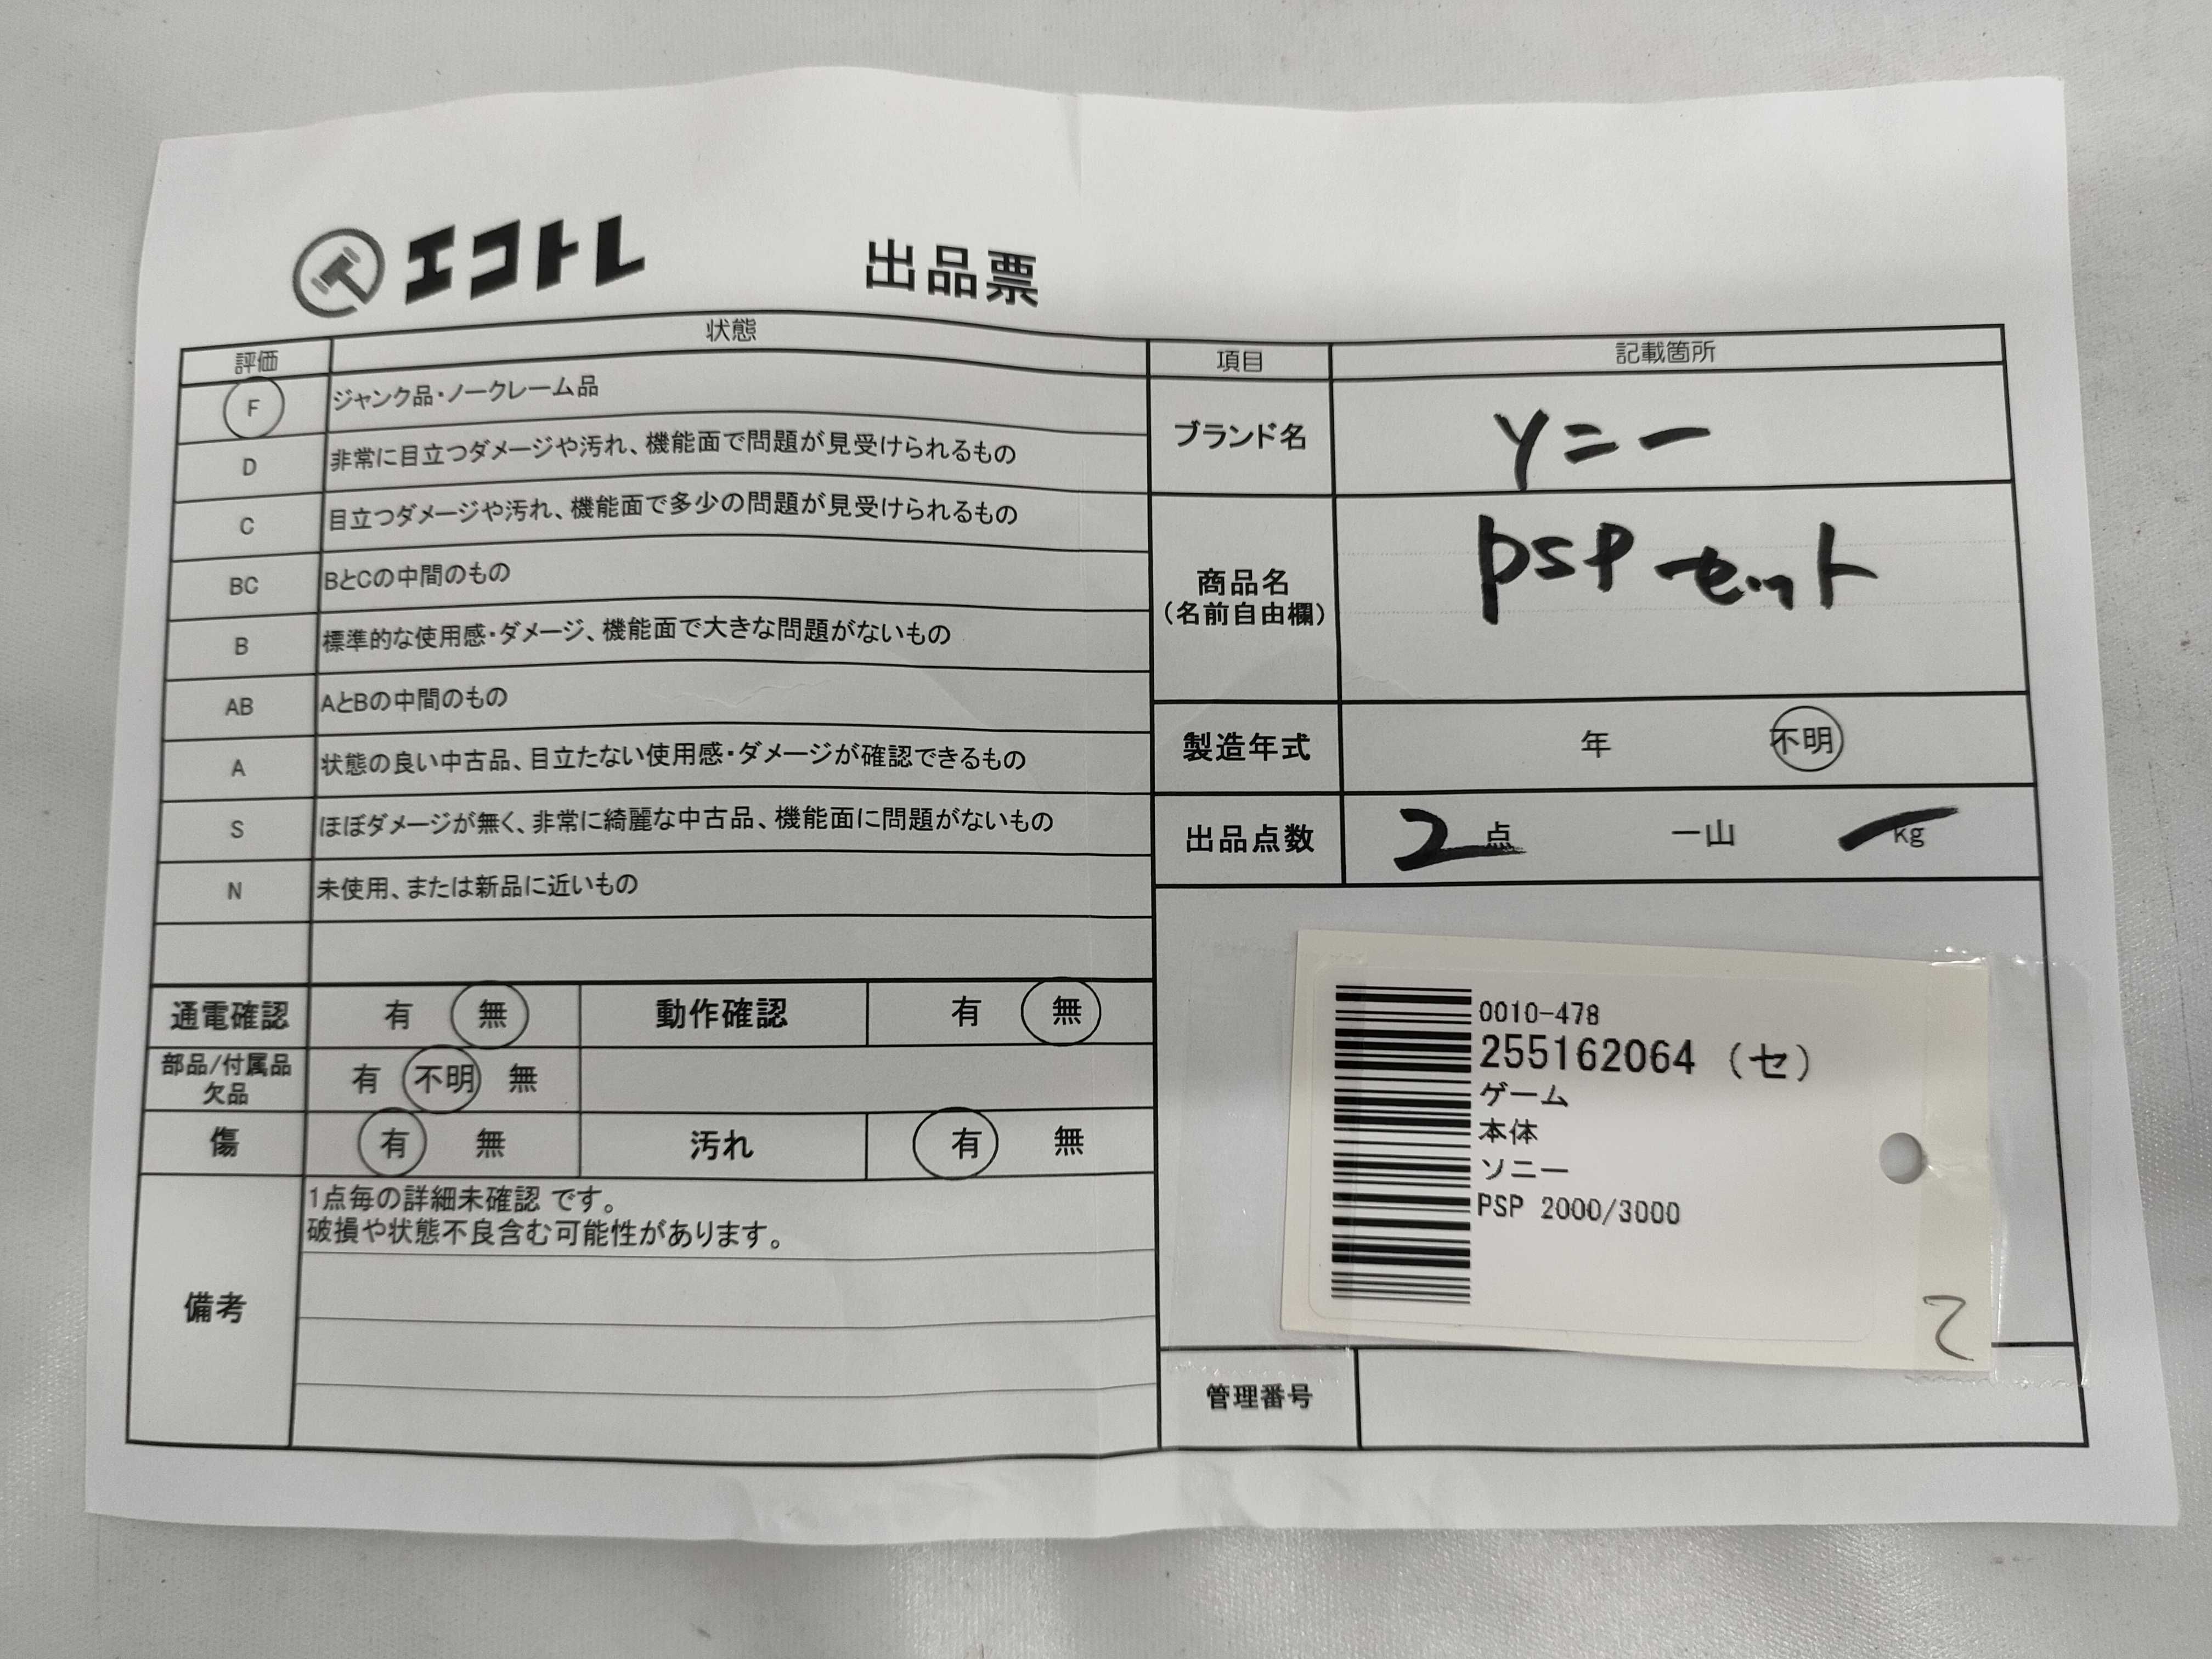 エコトレ
出品票
評価 状態
F ジャンク品・ノークレーム品
D 非常に目立つダメージや汚れ、機能面で問題が見受けられるもの
C 目立つダメージや汚れ、機能面で多少の問題が見受けられるもの
BC BとCの中間のもの
B 標準的な使用感・ダメージ、機能面で大きな問題がないもの
AB AとBの中間のもの
A 状態の良い中古品、目立たない使用感・ダメージが確認できるもの
S ほぼダメージが無く、非常に綺麗な中古品、機能面に問題がないもの
N 未使用、または新品に近いもの
通電確認 有 無 動作確認 有 無
部品/付属品
欠品
有 不明 無
傷 有 無 汚れ 有 無
備考
1点毎の詳細未確認 です。
破損や状態不良含む可能性があります。
項目 記載箇所
ブランド名 ソニー
商品名
(名前自由欄)
PSP セット
製造年式 年 不明
出品点数 2点 一山 kg
0010-478
255162064 (セ)
ゲーム
本体
ソニー
PSP 2000/3000
2
管理番号